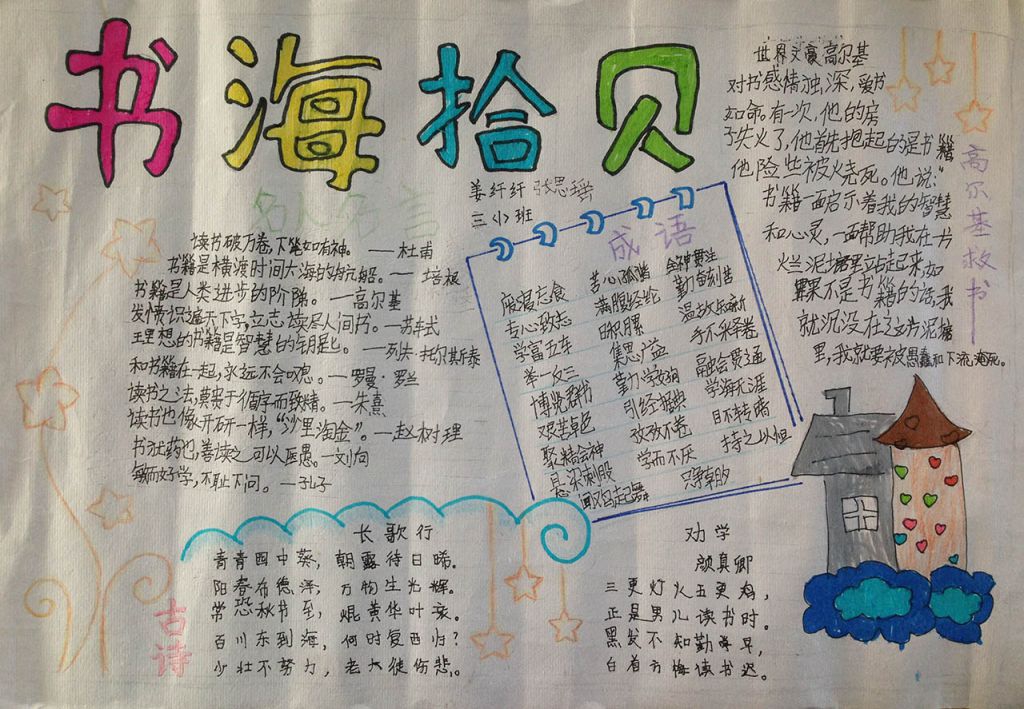 书海拾贝
姜纤纤 张思瑶
三(5)班
名人名言
读书破万卷,下笔如有神。——杜甫
书籍是横渡时间大海的航船。——培根
书籍是人类进步的阶梯。——高尔基
发愤识遍天下字,立志读尽人间书。——苏轼
理想的书籍是智慧的钥匙。——列夫·托尔斯泰
和书籍在一起,永远不会叹息。——罗曼·罗兰
读书之法,莫贵于循序而致精。——朱熹
读书也像开矿一样,“沙里淘金”。——赵树理
书犹药也,善读之可以医愚。——刘向
敏而好学,不耻下问。——孔子
成语
废寝忘食 苦心孤诣 全神贯注
专心致志 满腹经纶 勤奋刻苦
学富五车 日积月累 温故知新
举一反三 集思广益 手不释卷
博览群书 勤学 融会贯通
艰苦卓绝 引经据典 学海无涯
聚精会神 孜孜不卷 目不转睛
悬梁刺股 学而不厌 持之以恒
闻鸡起舞
世界文豪高尔基
对书感情独深,爱书
如命。有一次,他的房
子失火了,他首先抱起的是书籍
他险些被火烧死。他说:“
书籍一面启示着我的智慧
和心灵,一面帮助我在一片
烂泥塘里站起来,如
果不是书籍的话,我
就沉没在这片泥塘
里,我就要被愚蠢和下流淹死。
高尔基救书
古诗
长歌行
青青园中葵,朝露待日晞。
阳春布德泽,万物生光辉。
常恐秋节至,焜黄华叶衰。
百川东到海,何时复西归?
少壮不努力,老大徒伤悲。
劝学
颜真卿
三更灯火五更鸡,
正是男儿读书时。
黑发不知勤学早,
白首方悔读书迟。